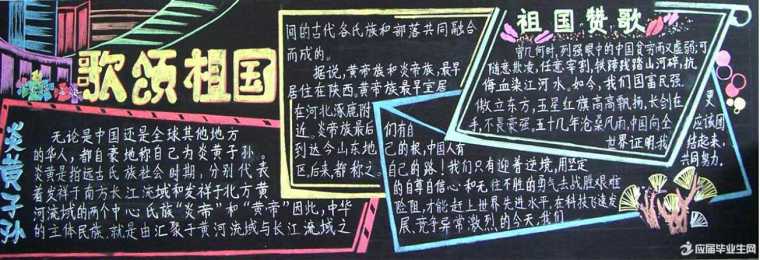 歌颂祖国
炎黄子孙
无论是中国还是全球其他地方
的华人，都自豪地称自己为炎黄子孙。
炎黄是指远古氏族社会时期，分别代表
着发祥于南方长江流域和发祥于北方黄
河流域的两个中心氏族“炎帝”和“黄帝”因此，中华
的主体民族，就是由汇聚于黄河流域与长江流域之
间的古代各氏族和部落共同融合
而成的。
据说，黄帝族和炎帝族，最早
居住在陕西，黄帝族最早定居
在河北涿鹿附
近。炎帝族最后
到达今山东地
区，后来，都称之。
祖国赞歌
曾几何时，列强眼中的中国贫穷而又虚弱；可
随意欺凌，任意宰割，铁蹄践踏山河碎，抗
侮血染江河水。如今，我们国富民强，
傲立东方，五星红旗高高飘扬，长剑在
手，不畏豪强，五十几年沧桑风雨，中国向全
世界证明，我
们有自
己的根，中国人有
自己的路！我们只有迎着逆境，用坚定
的自尊自信心和无往不胜的勇气去战胜艰难
险阻，才能赶上世界先进水平，在科技飞速发
展、竞争异常激烈的今天，我们
更
应该团
结起来，
共同努力。
应届毕业生网